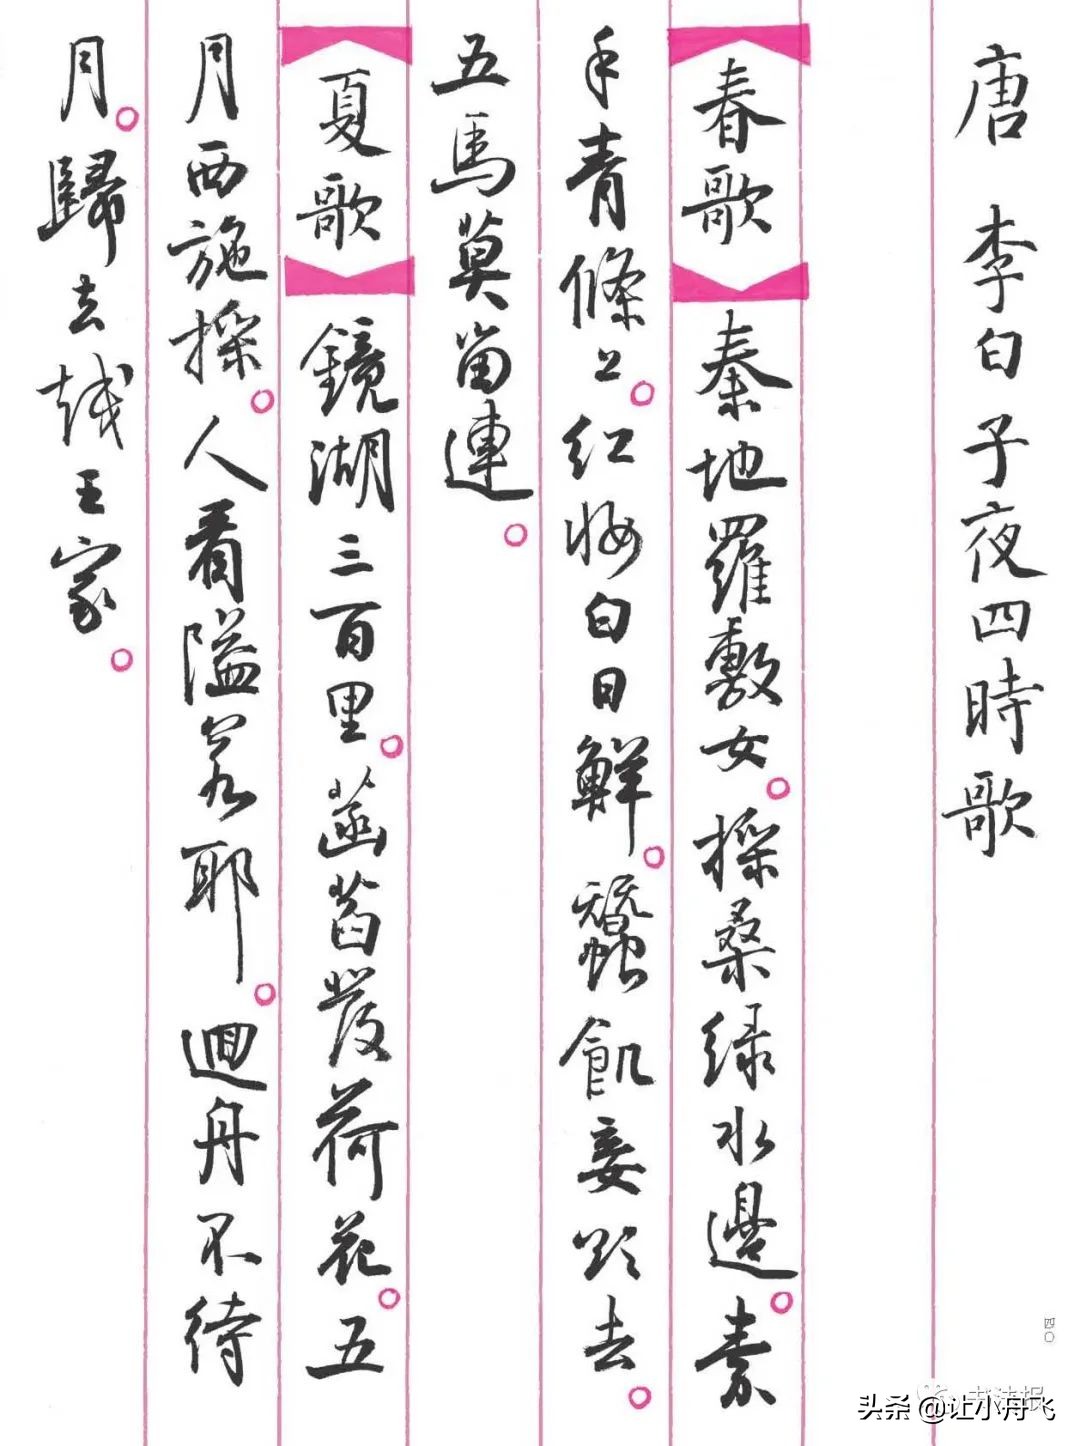 唐 李白 子夜四時歌
春歌
秦地羅敷女。採桑绿水邊。素
手青條上。红妝白日鮮。蠶飢妾欲去。
五馬莫留連。
夏歌
鏡湖三百里。菡萏發荷花。五
月西施採。人看隘若耶。迴舟不待
月。歸去越王家。
四〇
书法报
头条 @让小舟飞